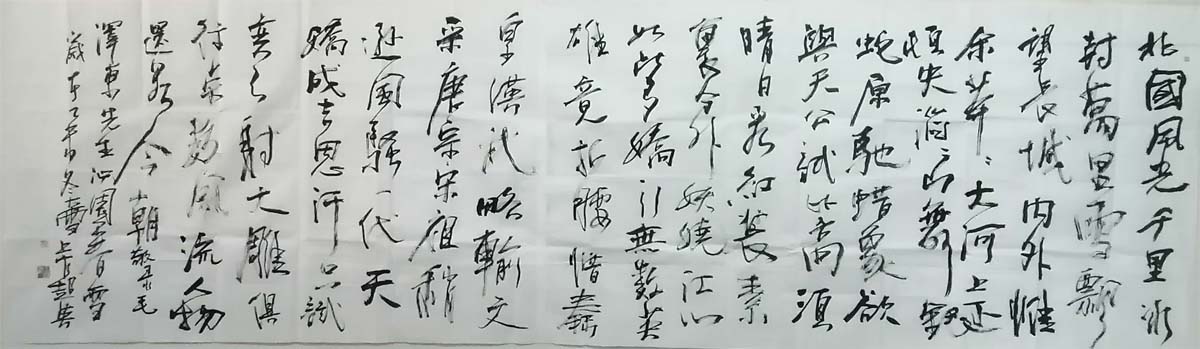 北國風光千里冰
封萬里雪飄
望長城内外惟
余莽〻大河上下
頓失滔〻山舞銀
蛇原馳蜡象欲
與天公試比高須
晴日看紅裝素
裹分外妖嬈江山
如此多嬌引無數英
雄竟折腰惜秦
皇漢武略輸文
采唐宗宋祖稍
遜風騷一代天
驕成吉思汗只識
彎弓射大雕俱
往矣數風流人物
還看今朝敬录毛
澤東先生沁園春雪
歲在乙未冬